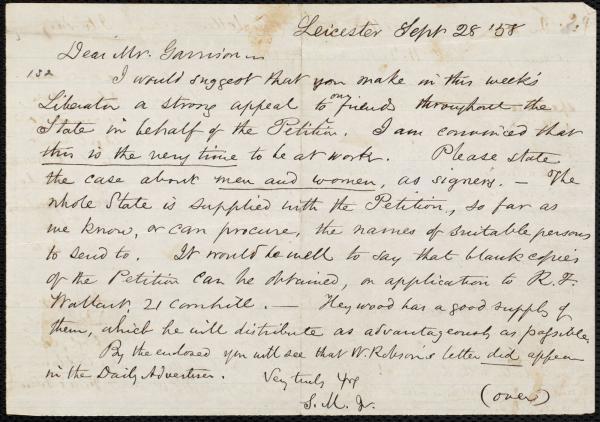 Leicester Sept 28 '58
Dear Mr. Garrison
132
I would suggest that you make in this week's
Liberator a strong appeal to our friends throughout the
State in behalf of the Petition. I am convinced that
this is the very time to be at work. Please state
the case about men and women, as signers. — The
whole State is supplied with the Petition, so far as
we know, or can procure, the names of suitable persons
to send to. It would be well to say that blank copies
of the Petition can be obtained, on application to R. F.
Wallcut, 21 Cornhill. — Heywood has a good supply of
them, which he will distribute as advantageously as possible.
By the enclosed you will see that W. Robson's letter did appear
in the Daily Advertiser. Very truly Yrs
S. M. Jr.
(over)